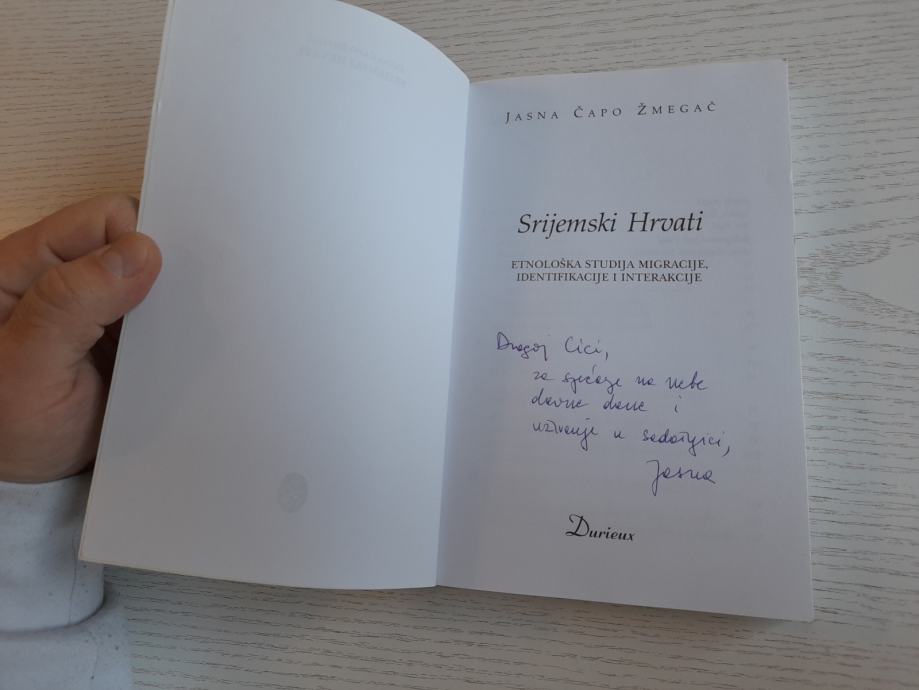 JASNA ČAPO ŽMEGAČ
Srijemski Hrvati
ETNOLOŠKA STUDIJA MIGRACIJE,
IDENTIFIKACIJE I INTERAKCIJE
Dragoj Cici,
za sjećanje na neke
davne dane i
uživanje u sadašnjici,
Jasna
Durieux